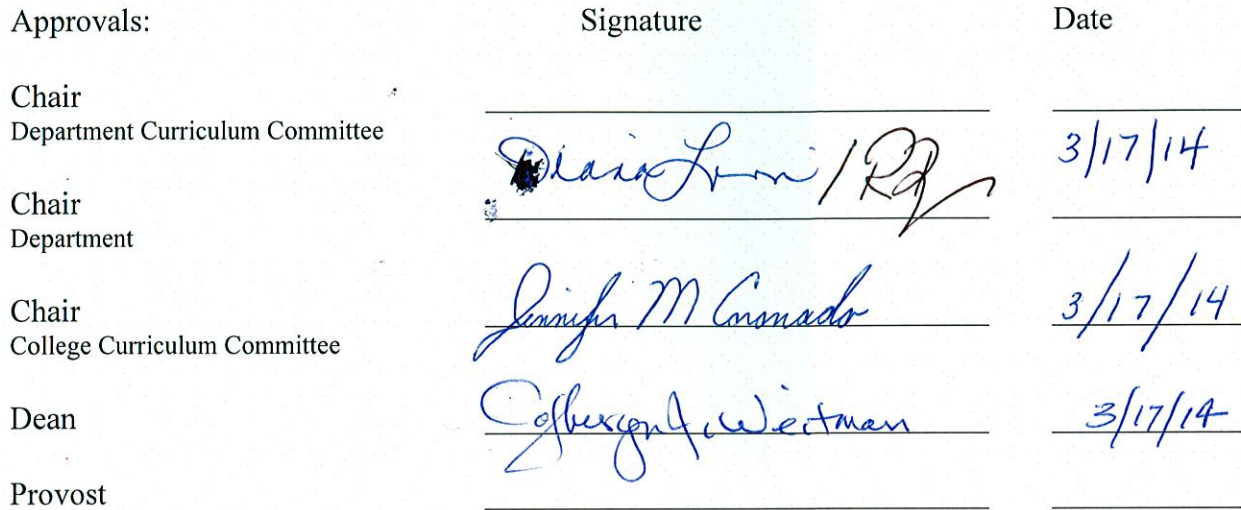 Approvals: Signature Date
Chair
Department Curriculum Committee
Diana 3/17/14
Chair
Department
Chair
College Curriculum Committee
Jennifer M Coronado 3/17/14
Dean
Weitman 3/17/14
Provost